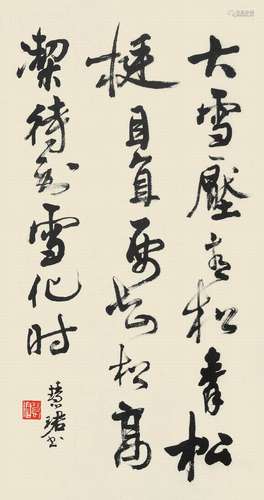 大雪壓青松青松
挺且直要知松高
絜待到雪化时
慧珺书